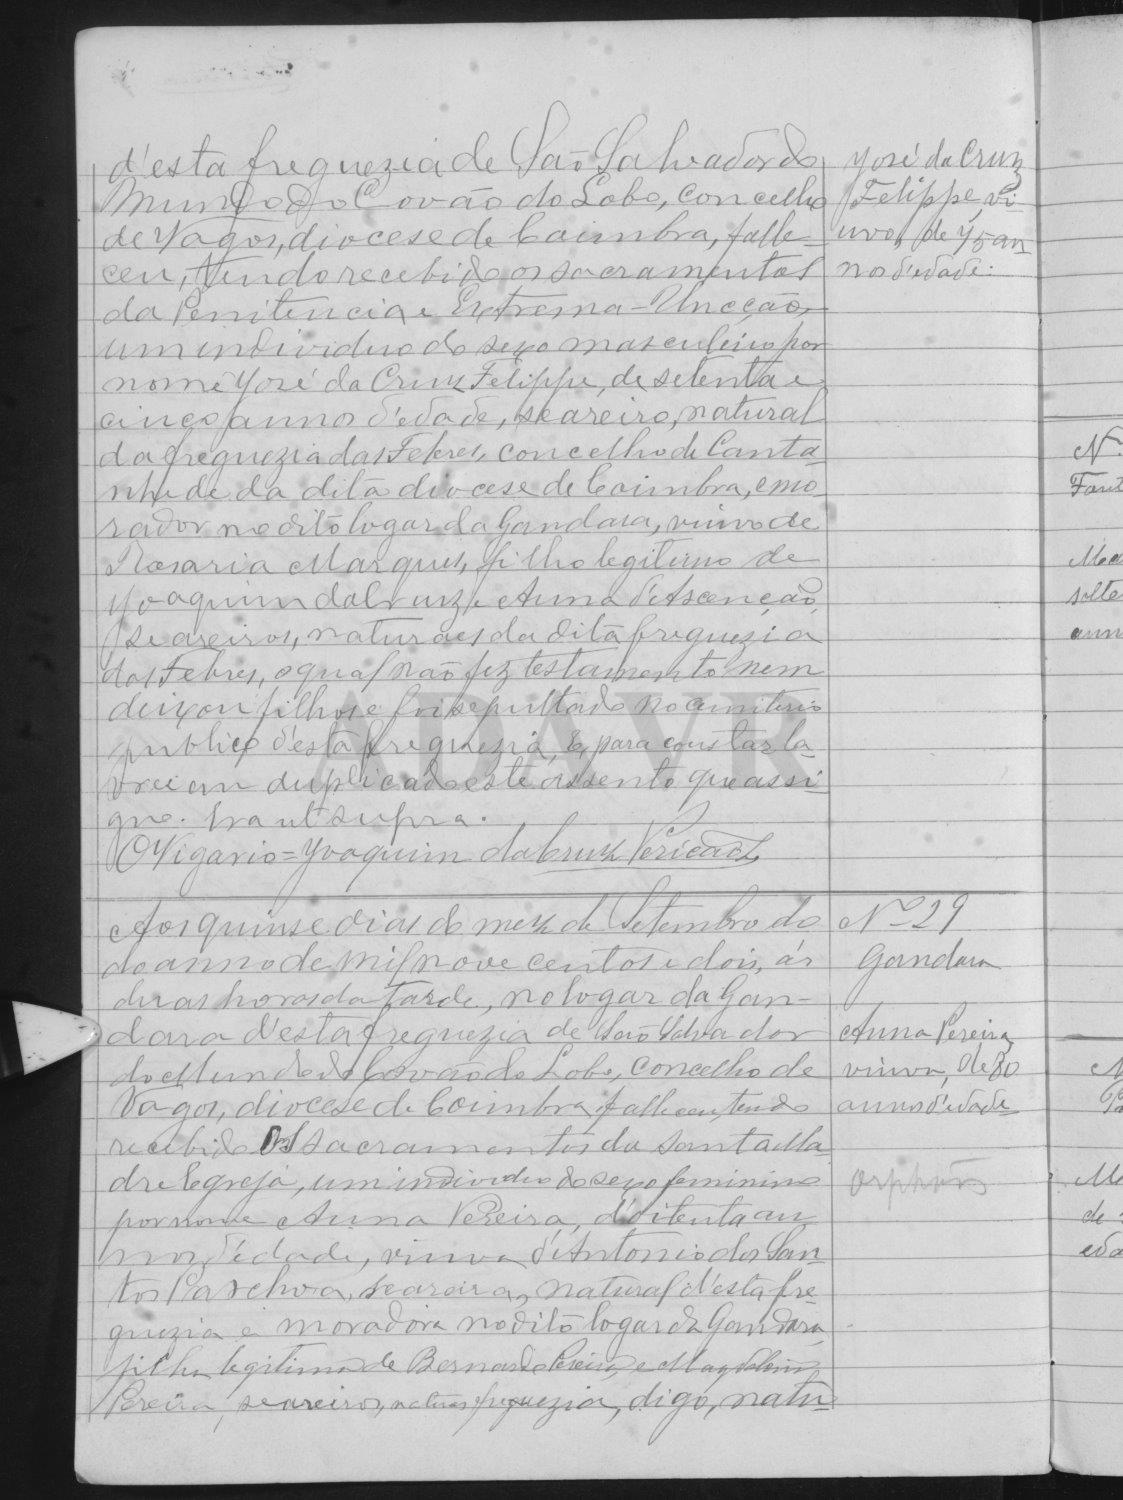 d'esta freguezia de São Salvador do
Mundo do Covão do Lobo, concelho
de Vagos, diocese de Coimbra, falle-
ceu, tendo recebido os sacramentos
da Penitencia e Extrema-Uncção,
um individuo do sexo masculino por
nome José da Cruz Felippe, de setenta e
cinco annos d'edade, seareiro, natural
da freguezia das Febres, concelho de Canta-
nhede da dita diocese de Coimbra, e mo-
rador no dito logar da Gandara, viuvo de
Rosaria Marques, filho legitimo de
Joaquim da Cruz e Anna d'Ascenção,
seareiros, naturaes da dita freguezia
das Febres, o qual não fez testamento nem
deixou filhos e foi sepultado no cemiterio
publico d'esta freguezia, E, para constar la-
vrei em duplicado este assento que assi-
gno. Era ut supra.
O Vigario = Joaquim da Cruz Pericão
José da Cruz
Felippe, vi-
uvo, de 75 an
nos d'edade.
Aos quinse dias do mez de Setembro do
do anno de mil nove centos e dois, ás
duas horas da tarde, no logar da Gan-
dara d'esta freguezia de São Salvador
do Mundo do Covão do Lobo, concelho de
Vagos, diocese de Coimbra, falleceu, tendo
recebido os sacramentos da Santa Ma-
dre Egreja, um individuo do sexo feminino
por nome Anna Pereira, d'oitenta an
nos d'edade, viuva d'Antonio dos San
tos, seareira, natural d'esta fre-
guezia e moradora no dito logar da Gandara
filha legitima de Bernardo Pereira e Magdalena
Pereira, seareiros, naturaes freguezia, digo, natu-
Nº 29
Gandara
Anna Pereira
viuva, de 80
annos d'edade
Orphãos
ADAVR